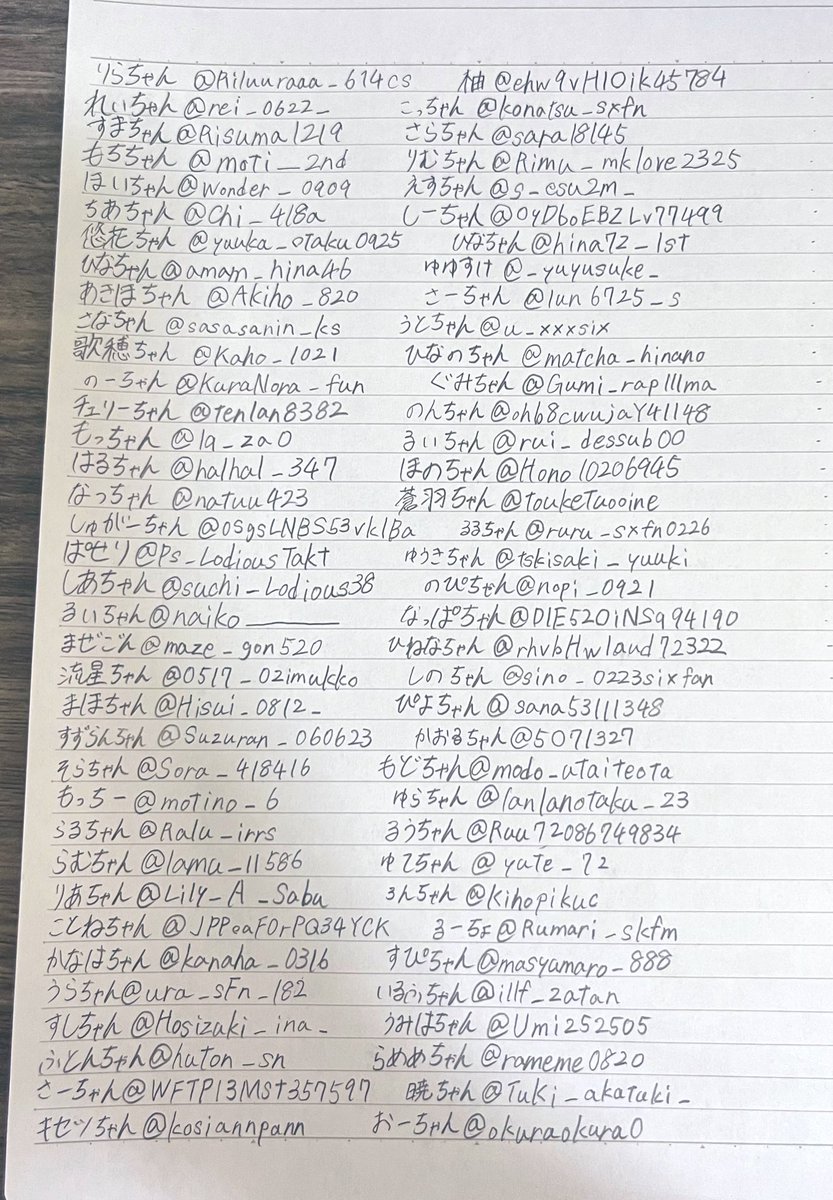 りらちゃん @Riluuraaa_614cs 柚 @ehw9vH1Oik45784
れいちゃん @rei_0622_ こっちゃん @konatsu_sxfn
すまちゃん @Risuma1219 さらちゃん @sara18145
もちちゃん @moti__2nd りむちゃん @Rimu_mklove2325
ほいちゃん @Wonder_0909 えすちゃん @s_esu2m_
ちあちゃん @Chi_418a しーちゃん @OyDboEBZLv77499
悠花ちゃん @yuuka_otaku0925 ひなちゃん @hina72_1st
ひなちゃん @amam_hina46 ゆゆすけ @_yuyusuke_
あきほちゃん @Akiho_820 さーちゃん @lun6725_s
さなちゃん @sasasanin_ks うとちゃん @u_xxxsix
歌穂ちゃん @Kaho_1021 ひなのちゃん @matcha_hinano
のーちゃん @KuraNora_fun ぐみちゃん @Gumi_rap111ma
チェリーちゃん @tenlan8382 のんちゃん @oh68cwujaY41148
もっちゃん @la_za0 るいちゃん @rui_dessub00
はるちゃん @halhal_347 ほのちゃん @Hono10206945
なっちゃん @natuu423 蒼羽ちゃん @toukeTuooine
しゅがーちゃん @OSgsLNBS53vklBa るるちゃん @ruru_sxfn0226
ぱせり @Ps_LodiousTakt ゆうきちゃん @tskisaki_yuuki
しあちゃん @suchi_Lodious38 のぴちゃん @nopi_0921
るいちゃん @naiko______ なっぱちゃん @DIE520iNSq94190
まぜごん @maze_gon520 ひねなちゃん @rhvbHwlaud72322
流星ちゃん @0517_02imukko しのちゃん @sino_0223sixfan
まほちゃん @Hisui_0812_ ぴよちゃん @sana53111348
すずらんちゃん @Suzuran_060623 かおるちゃん @5071327
そらちゃん @Sora_418416 もどちゃん @modo_utaiteota
もっちー @motino_6 ゆらちゃん @lanlanotaku_23
らるちゃん @Ralu_irrs るうちゃん @Ruu72086749834
らむちゃん @lamu_11586 ゆてちゃん @yute_72
りあちゃん @Lily_A_Sabu るんちゃん @Kihopikuc
ことねちゃん @JPPeaF0rPQ34YCK るーちょ @Rumari_skfm
かなはちゃん @kanaha_0316 すぴちゃん @masyumaro_888
うらちゃん @ura_sFn_182 いるふちゃん @illf_2atan
すしちゃん @Hosizaki_ina_ うみはちゃん @Umi252505
ふとんちゃん @huton_sn らめめちゃん @rameme0820
さーちゃん @WFTP13MSt357597 暁ちゃん @TuKi_akatuki_
キセツちゃん @kosiannpann おーちゃん @okuraokura0